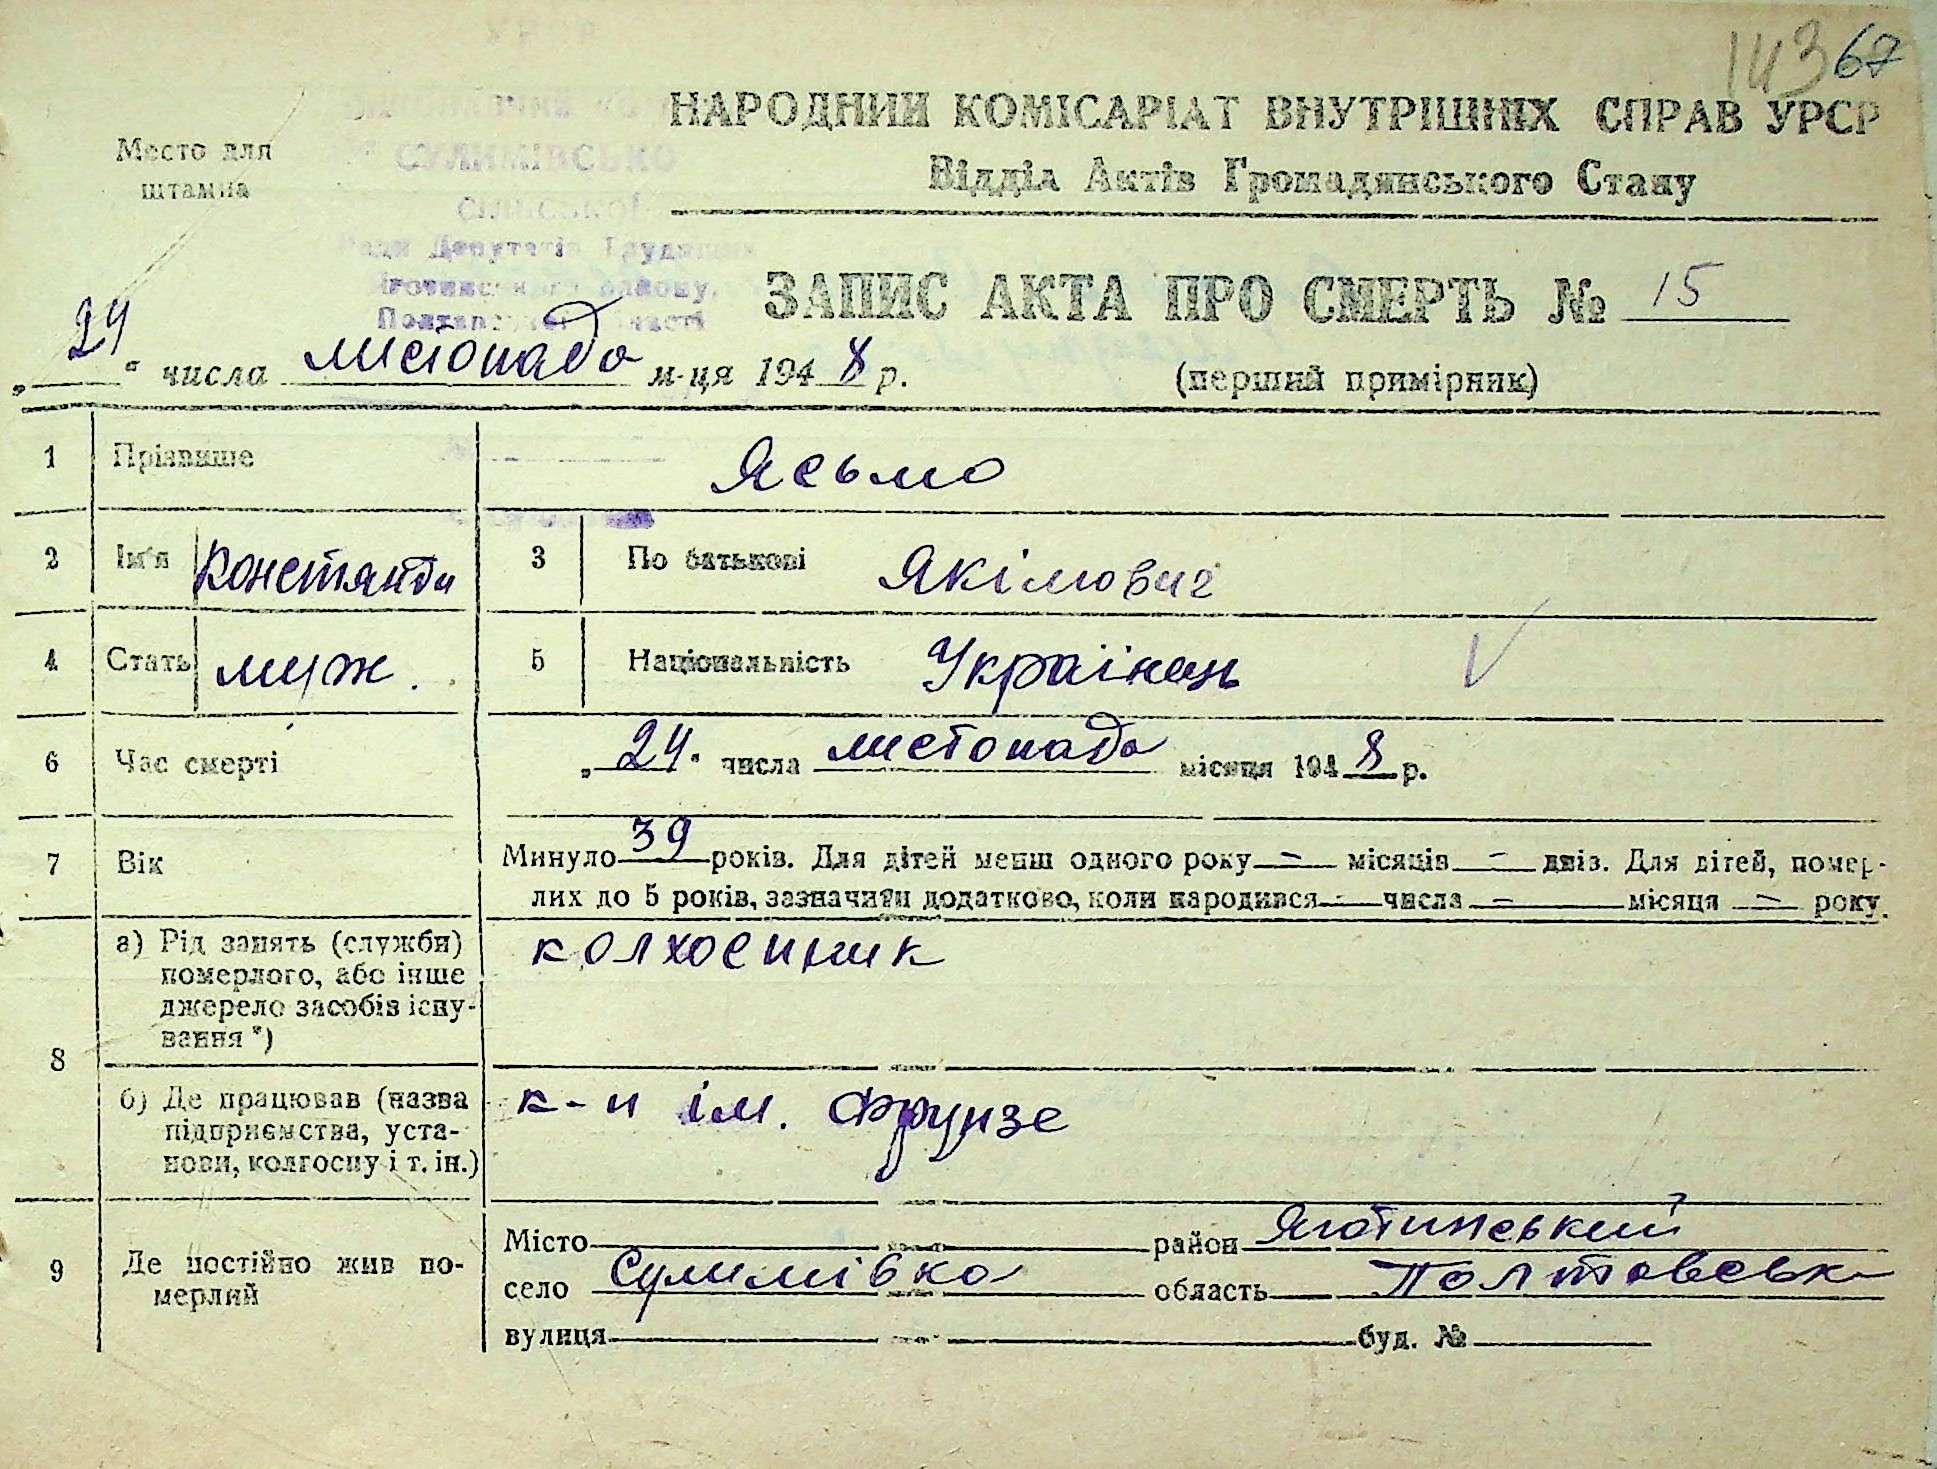 143 67
НАРОДНИЙ КОМІСАРІАТ ВНУТРІШНІХ СПРАВ УРСР
Відділ Актів Громадянського Стану
Место для
штампа
СУЛИМІВСЬКО
СІЛЬСЬКОЇ
Ради Депутатів Трудящих
Яготинського району,
Полтавської області
ЗАПИС АКТА ПРО СМЕРТЬ № 15
„24“ числа листопада м-ця 1948 р.
(перший примірник)
1 Прізвище Ясьмо
2 Ім'я Констянти 3 По батькові Якімович
4 Стать муж. 5 Національність Українець
6 Час смерті „24“ числа листопада місяця 1948 р.
7 Вік Минуло 39 років. Для дітей менш одного року – місяців – днів. Для дітей, помер-
лих до 5 років, зазначити додатково, коли народився – числа – місяця – року.
8 а) Рід занять (служби) колхосник
померлого, або інше
джерело засобів існу-
вання *)
б) Де працював (назва к-п ім. Фрунзе
підприємства, уста-
нови, колгоспу і т. ін.)
9 Де постійно жив по-
мерлий
Місто район Яготинський
село Сулимівка область Полтавськ
вулиця буд. №